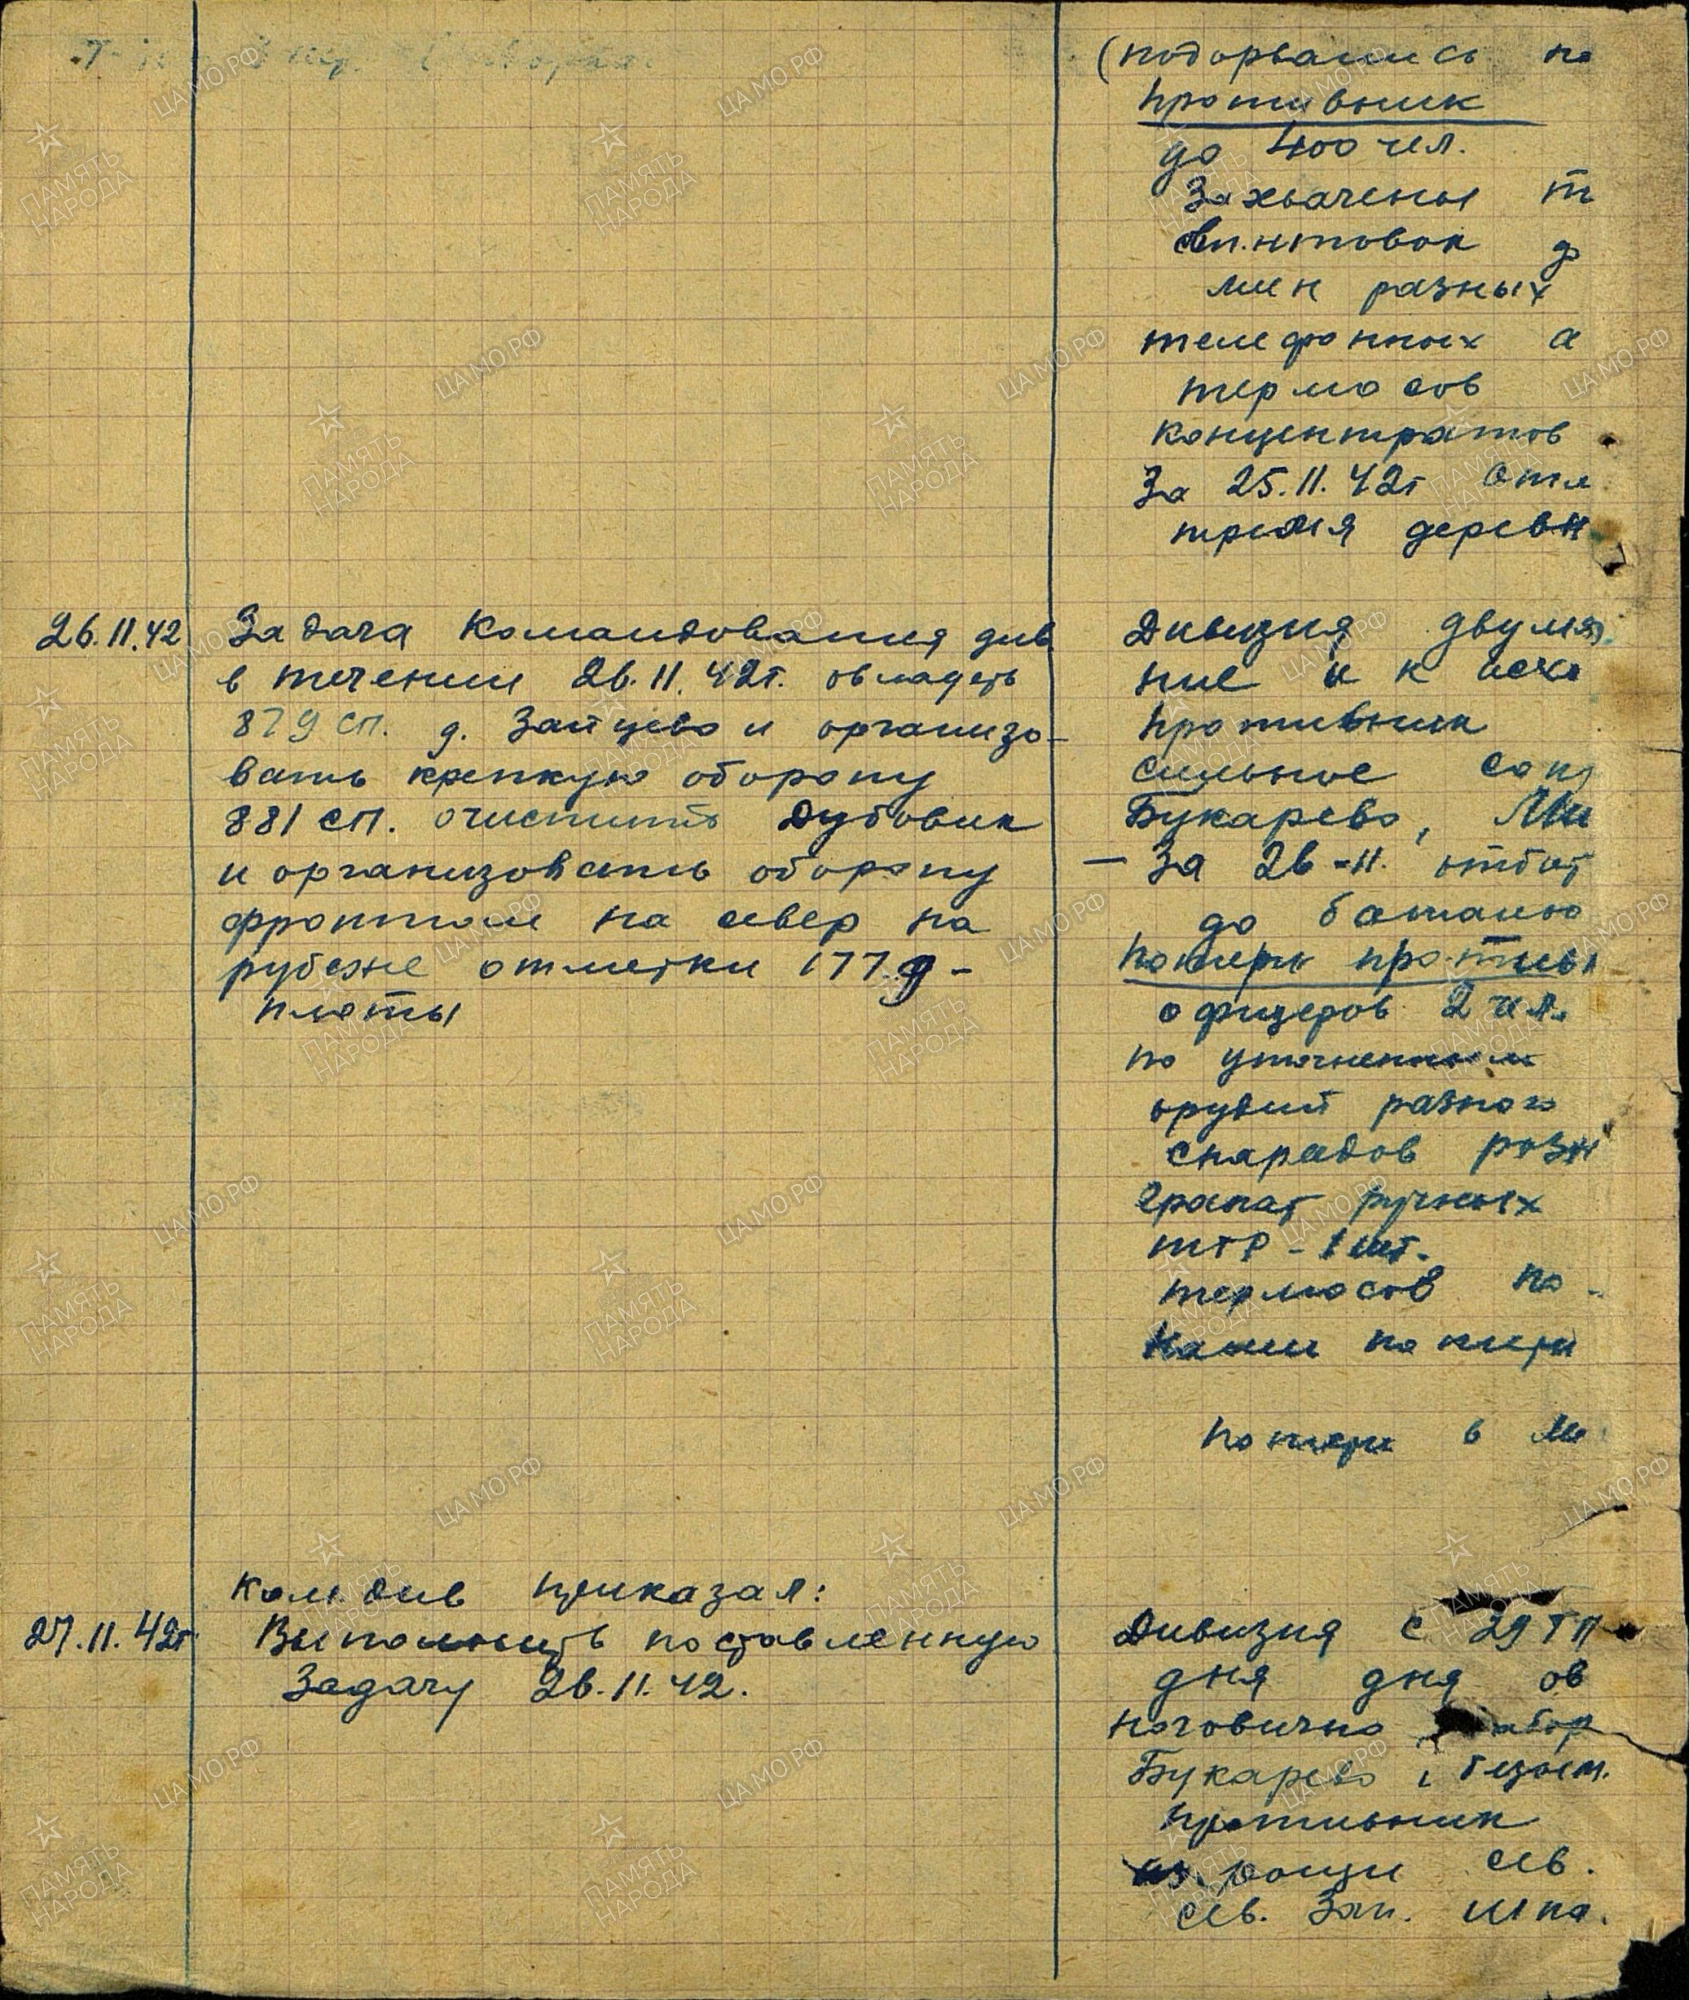 (подорвались на
противник
до 400 чел.
Захвачены
винтовок
мин разных
телефонных а
термосов
концентратов
За 25.11.42г
тремя деревн
26.11.42
Задача Командования див
в течении 26.11.42г. овладеть
879 сп. д. Зайцево и организо-
вать крепкую оборону
881 сп. очистить Дубовик
и организовать оборону
фронтом на север на
рубеже отметки 177.9 -
плоты
Дивизия двумя
ние и к исхо
противник
сильное соп
Букарево,
- За 26-11. отбит
до баталио
потери против
офицеров 2 чел.
по уточненным
орудий разного
снарядов разн
гранат ручных
ПТР - 1 шт.
термосов по
Наши потери
потери в
Ком.див приказал:
27.11.42г
Выполнить поставленную
Задачу 26.11.42.
Дивизия с 29 ТП
дня дня ов
Ноговично
Букарево,
противник
из рощи сев.
сев. Зап.
ЦАМО.РФ
ПАМЯТЬ
НАРОДА